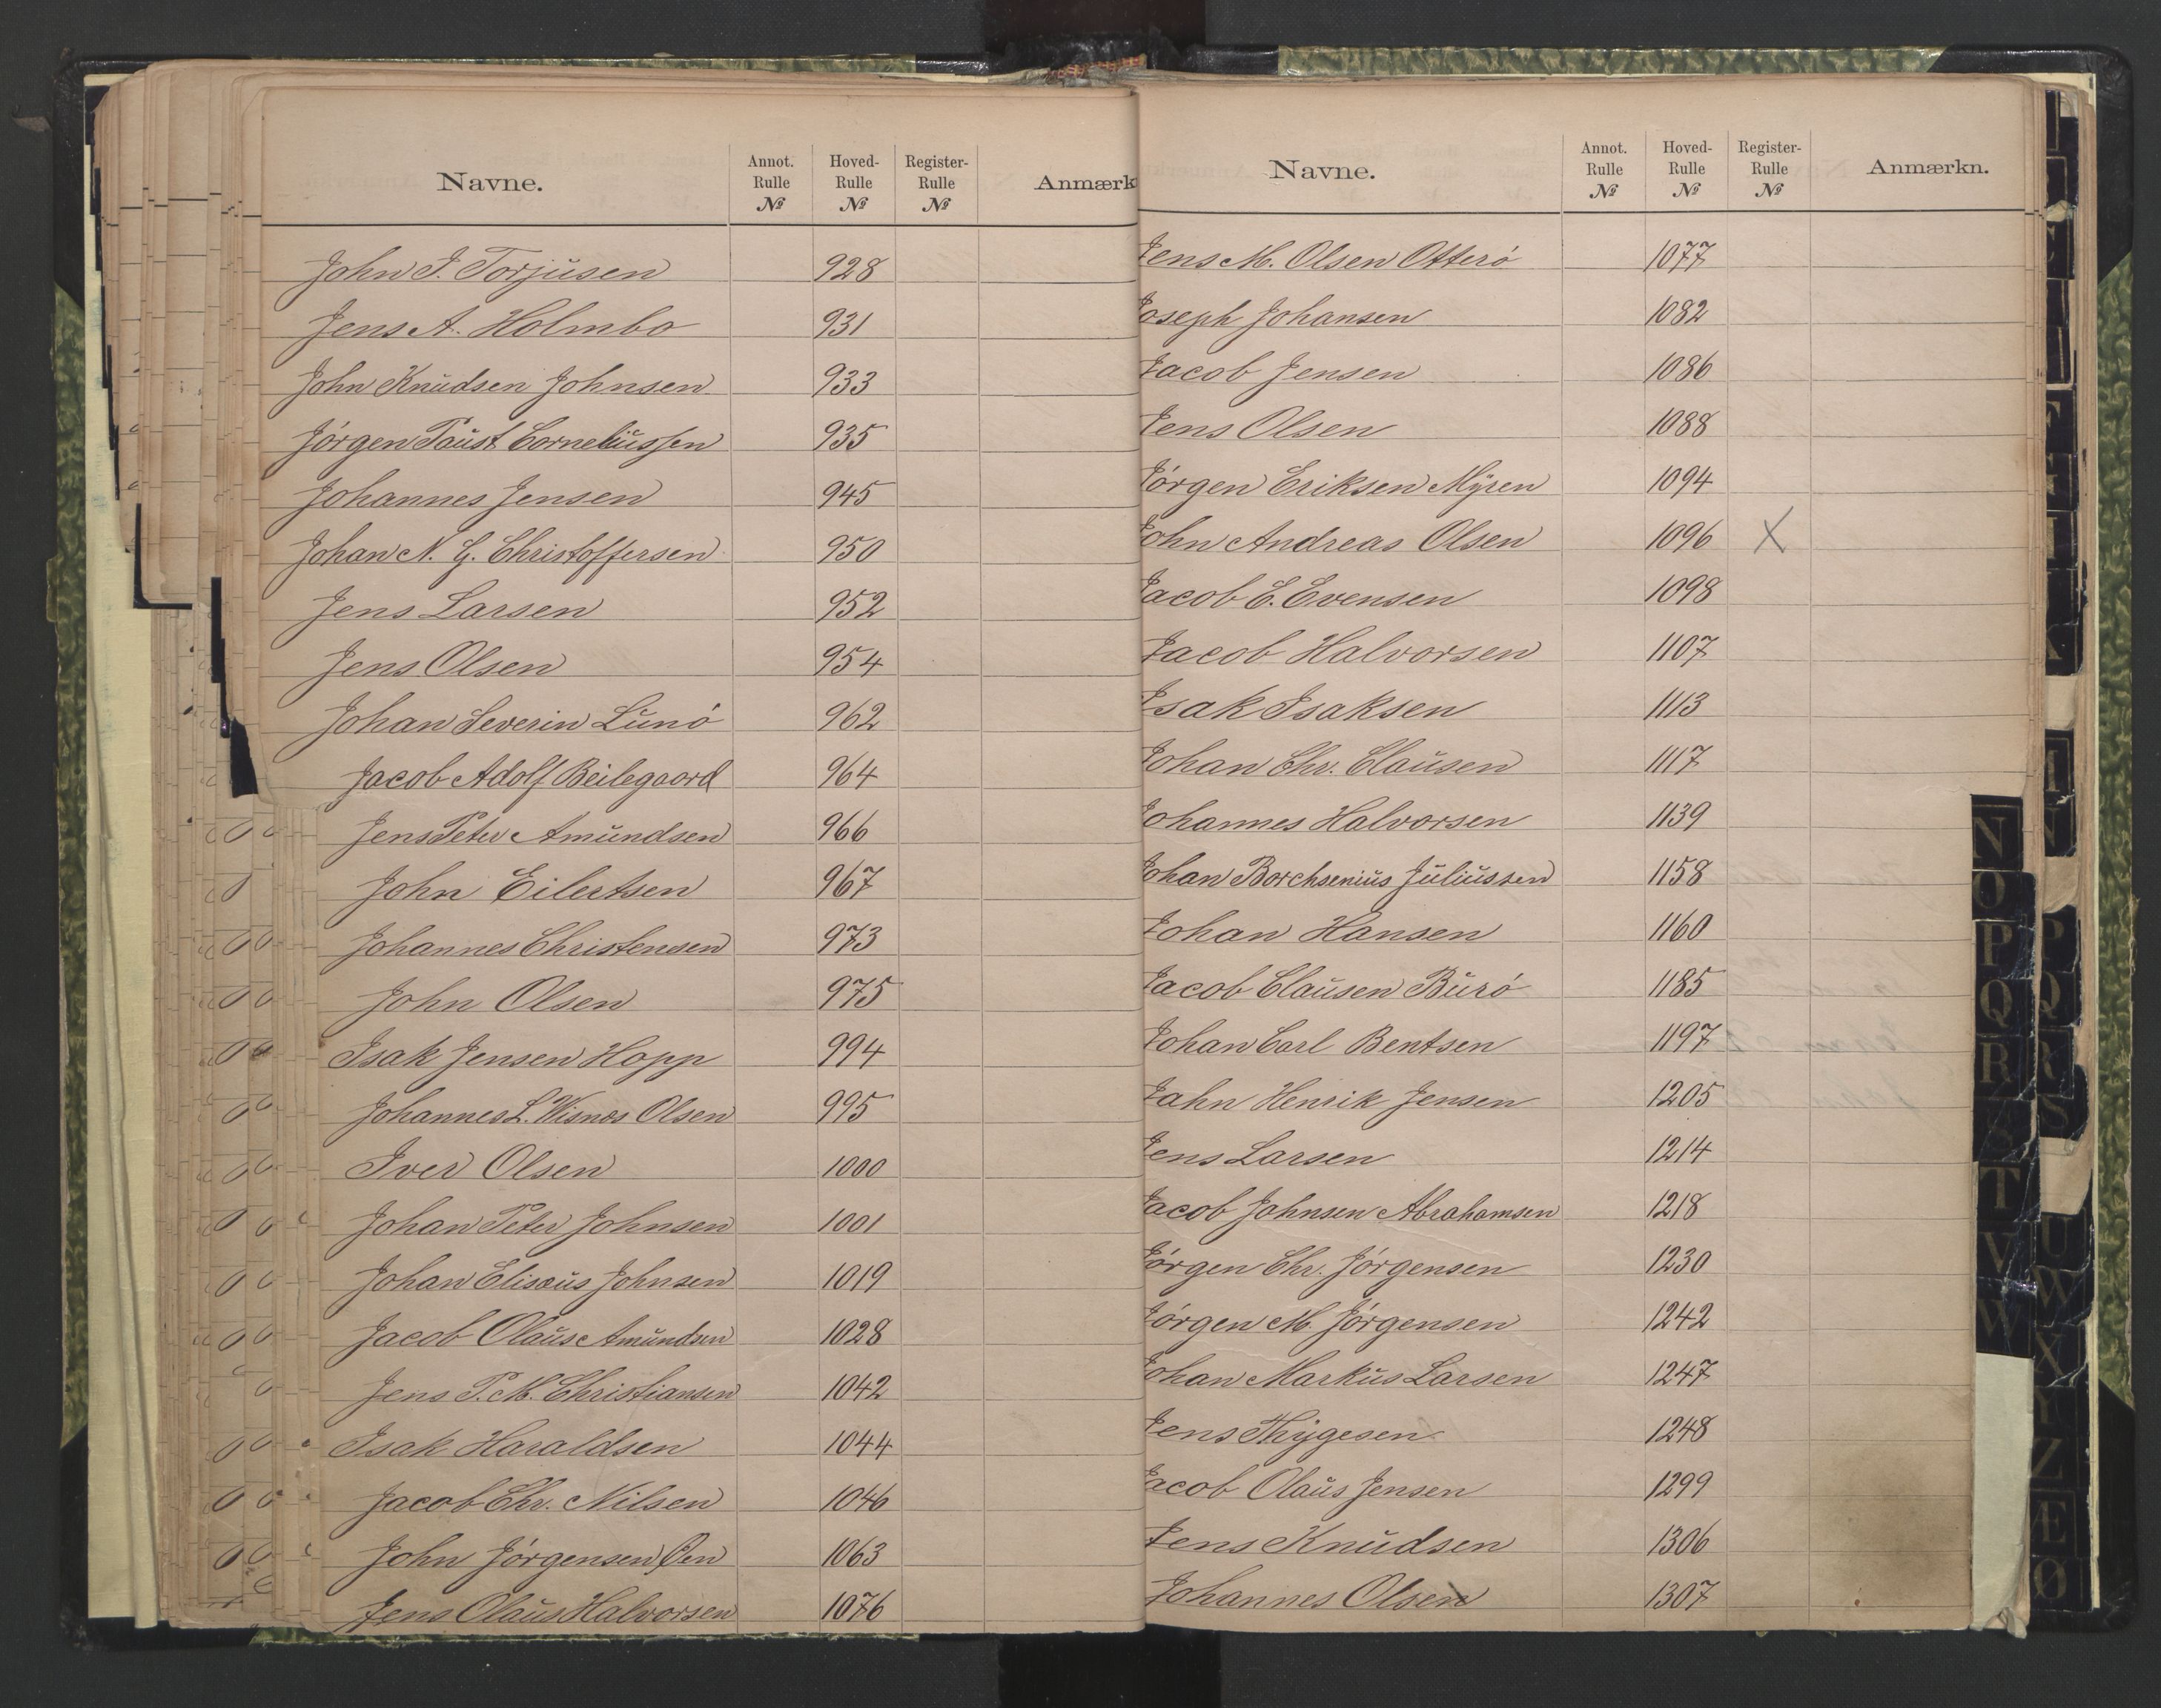 Navne.
Annot. Rulle №
Hoved- Rulle №
Register- Rulle №
Anmærk
John J. Torjusen 928
Jens A. Holmbo 931
John Knudsen Johnsen 933
Jörgen Faust Corneliussen 935
Johannes Jensen 945
Johan N. G. Christoffersen 950
Jens Larsen 952
Jens Olsen 954
Johan Severin Lunö 962
Jacob Adolf Beilegaard 964
Jens Peter Amundsen 966
John Eilertsen 967
Johannes Christensen 973
John Olsen 975
Isak Jensen Hopp 994
Johannes L. Wisnæs Olsen 995
Iver Olsen 1000
Johan Peter Johnsen 1001
Johan Elisæus Johnsen 1019
Jacob Olaus Amundsen 1028
Jens P. M. Christiansen 1042
Isak Haraldsen 1044
Jacob Chr. Nilsen 1046
John Jörgensen Öen 1063
Jens Olaus Halvorsen 1076
Navne.
Annot. Rulle №
Hoved- Rulle №
Register- Rulle №
Anmærkn.
Jens M. Olsen Otterö 1077
Joseph Johansen 1082
Jacob Jensen 1086
Jens Olsen 1088
Jörgen Eriksen Myren 1094
John Andreas Olsen 1096 X
Jacob E. Evensen 1098
Jacob Halvorsen 1107
Isak Isaksen 1113
Johan Chr. Clausen 1117
Johannes Halvorsen 1139
Johan Borchsenius Juliussen 1158
Johan Hansen 1160
Jacob Clausen Burö 1185
Johan Carl Bentsen 1197
Jahn Henrik Jensen 1205
Jens Larsen 1214
Jacob Johnsen Abrahamsen 1218
Jörgen Chr. Jörgensen 1230
Jörgen M. Jörgensen 1242
Johan Markus Larsen 1247
Jens Thygesen 1248
Jacob Olaus Jensen 1299
Jens Knudsen 1306
Johannes Olsen 1307
N
O
P
Q
R
S
T
V
W
P
Q
R
S
U
W
X
Y
Z
Æ
Ø